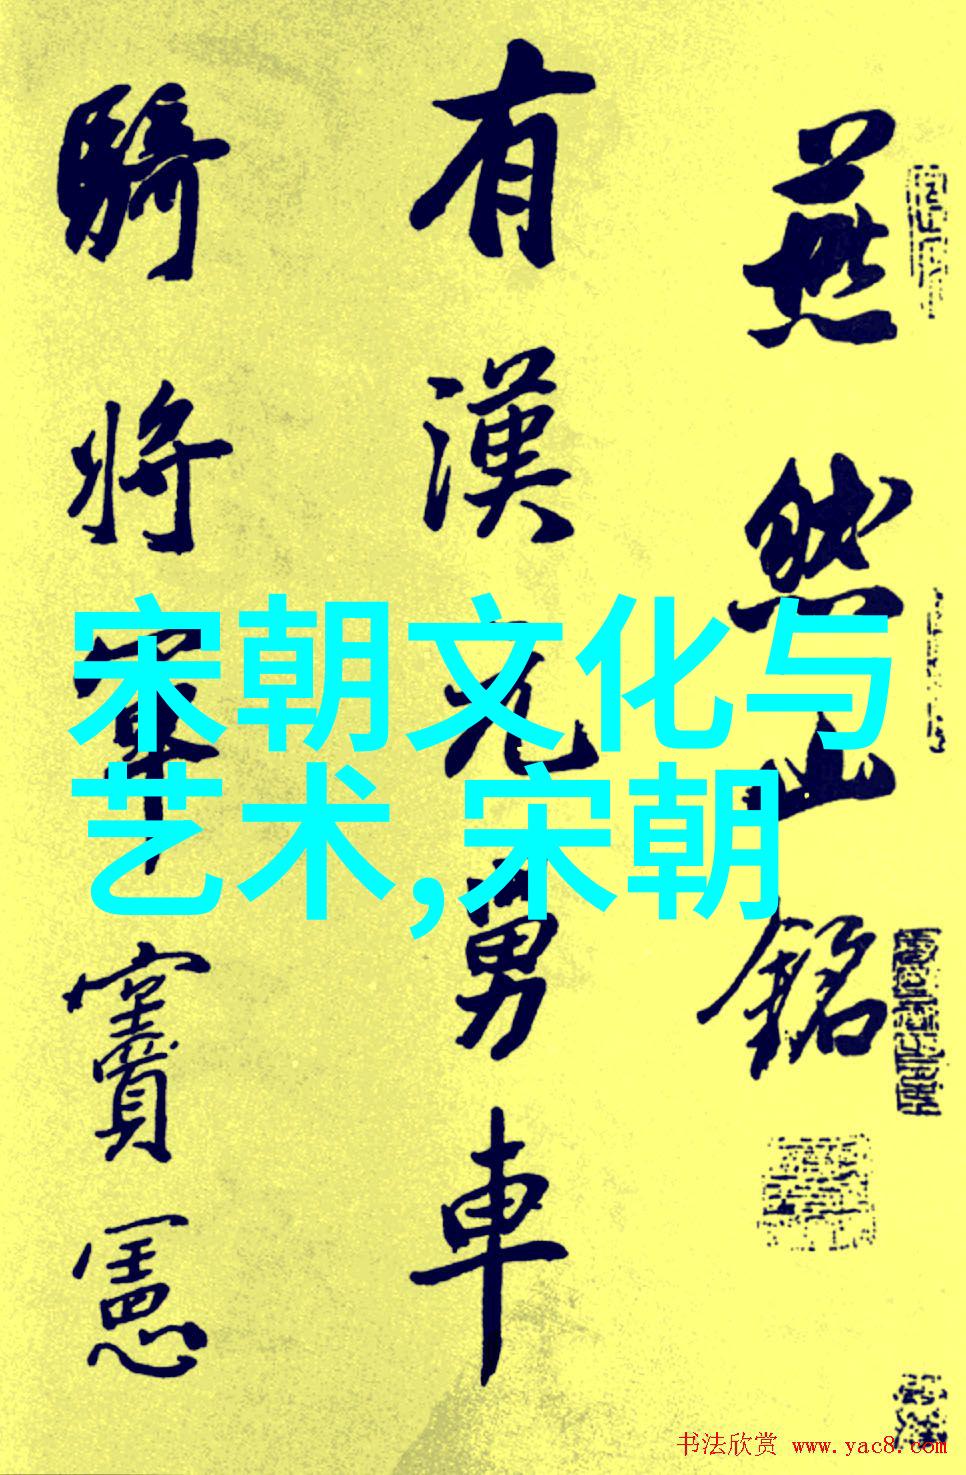 燕然山銘
有漢元舅車
騎將軍竇憲
宋朝文化与
艺术,宋朝
书法欣赏 www.yac8.com